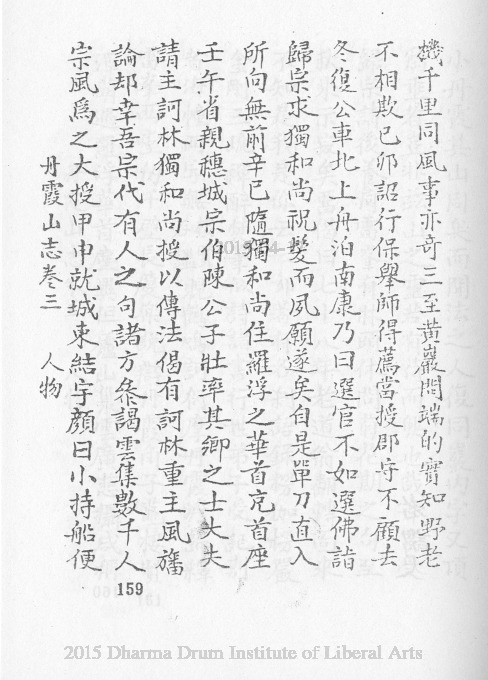 機千里同風事亦奇三至黃巖閗端的實知野老
不相欺已卯詔行保舉師得薦當授郡守不顧去
冬復公車北上舟泊南康乃曰選官不如選佛詣
歸宗求獨和尚祝髮而夙願遂矣自是單刀直入
所向無前辛巳隨獨和尚住羅浮之華首充首座
壬午省親穗城宗伯陳公子壯率其鄉之士大夫
請主訶林獨和尚授以傳法偈有訶林重主風旛
論却幸吾宗代有人之句諸方叅謁雲集數千人
宗風爲之大授甲申就城東結宇顏曰小持船便
丹霞山志卷三 人物
159
2015 Dharma Drum Institute of Liberal Arts